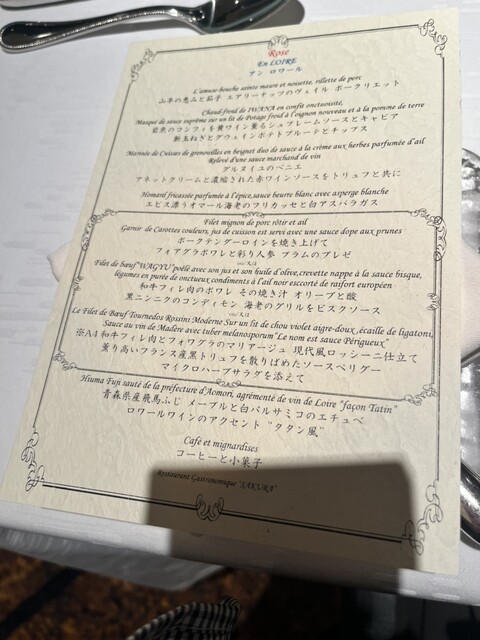 Rose
En LOIRE
アン ロワール
L'amuse-bouche sainte maure et noisette, rillette de porc
山羊の恵みと茄子 エアリーナッツのヴェイル ポークリエット
Chaud-froid de IWANA en confit onctuosité,
Masqué de sauce suprême sur un lit de Potage froid à l'ognon nouveau et à la pomme de terre
岩魚のコンフィを黄ワイン薫るシュプレームソースとキャビア
新玉ねぎとグウェインポテトブルーテとチップス
Marinée de Cuisses de grenouilles en beignet duo de sauce à la crème aux herbes parfumée d'ail
Relevé d'une sauce marchand de vin
グルヌイユのベニエ
アネットクリームと濃縮された赤ワインソースをトリュフと共に
Homard fricassée parfumée à l'épice, sauce beurre blanc avec asperge blanche
エピス漂うオマール海老のフリカッセと白アスパラガス
Filet mignon de porc rôtir et ail
Garnir de Carottes couleurs, jus de cuisson est servi avec une sauce dope aux prunes
ポークテンダーロインを焼き上げて
フォアグラポワレと彩り人参 プラムのプレゼ
又は
Filet de bœuf "WAGYU" poêlé avec son jus et son huile d'olive, crevette nappé à la sauce bisque,
légumes en purée de onctueux condiments à l'ail noir escorté de raifort européen
和牛フィレ肉のポワレ その焼き汁 オリーブと酸
黒ニンニクのコンディモン 海老のグリルをビスクソース
又は
Le Filet de Bœuf Tournedos Rossini Moderne Sur un lit de chou violet aigre-doux, écaille de ligatoni,
Sauce au vin de Madère avec tuber melanosporum "Le nom est sauce Périgueux"
※A4 和牛フィレ肉とフォワグラのマリアージュ 現代風ロッシーニ仕立て
薫り高いフランス産黒トリュフを散りばめたソースペリグー
マイクロハーブサラダを添えて
Hiuma Fuji sauté de la préfecture d'Aomori, agrémenté de vin de Loire "façon Tatin"
青森県産飛馬ふじ メープルと白バルサミコのエチュベ
ロワールワインのアクセント "タタン風"
Café et mignardises
コーヒーと小菓子
Restaurant Gastronomique 'SAKURA'